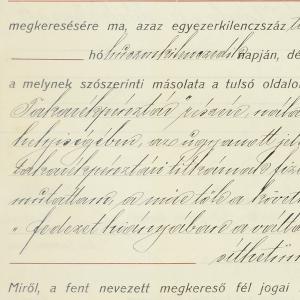 megkeresésére ma, azaz egyezerkilenczszáz
hó huszonkilenczedik napján, dé
a melynek szószerinti másolata a tulsó oldalo
Takarékpénztár" részére, nála
helyiségében, az ugyanott jel
takarékpénztári titkárnak fize
mutattam, a mire tőle a követ
"fedezet hiányában a vált
Miről, a fent nevezett megkereső fél jogai